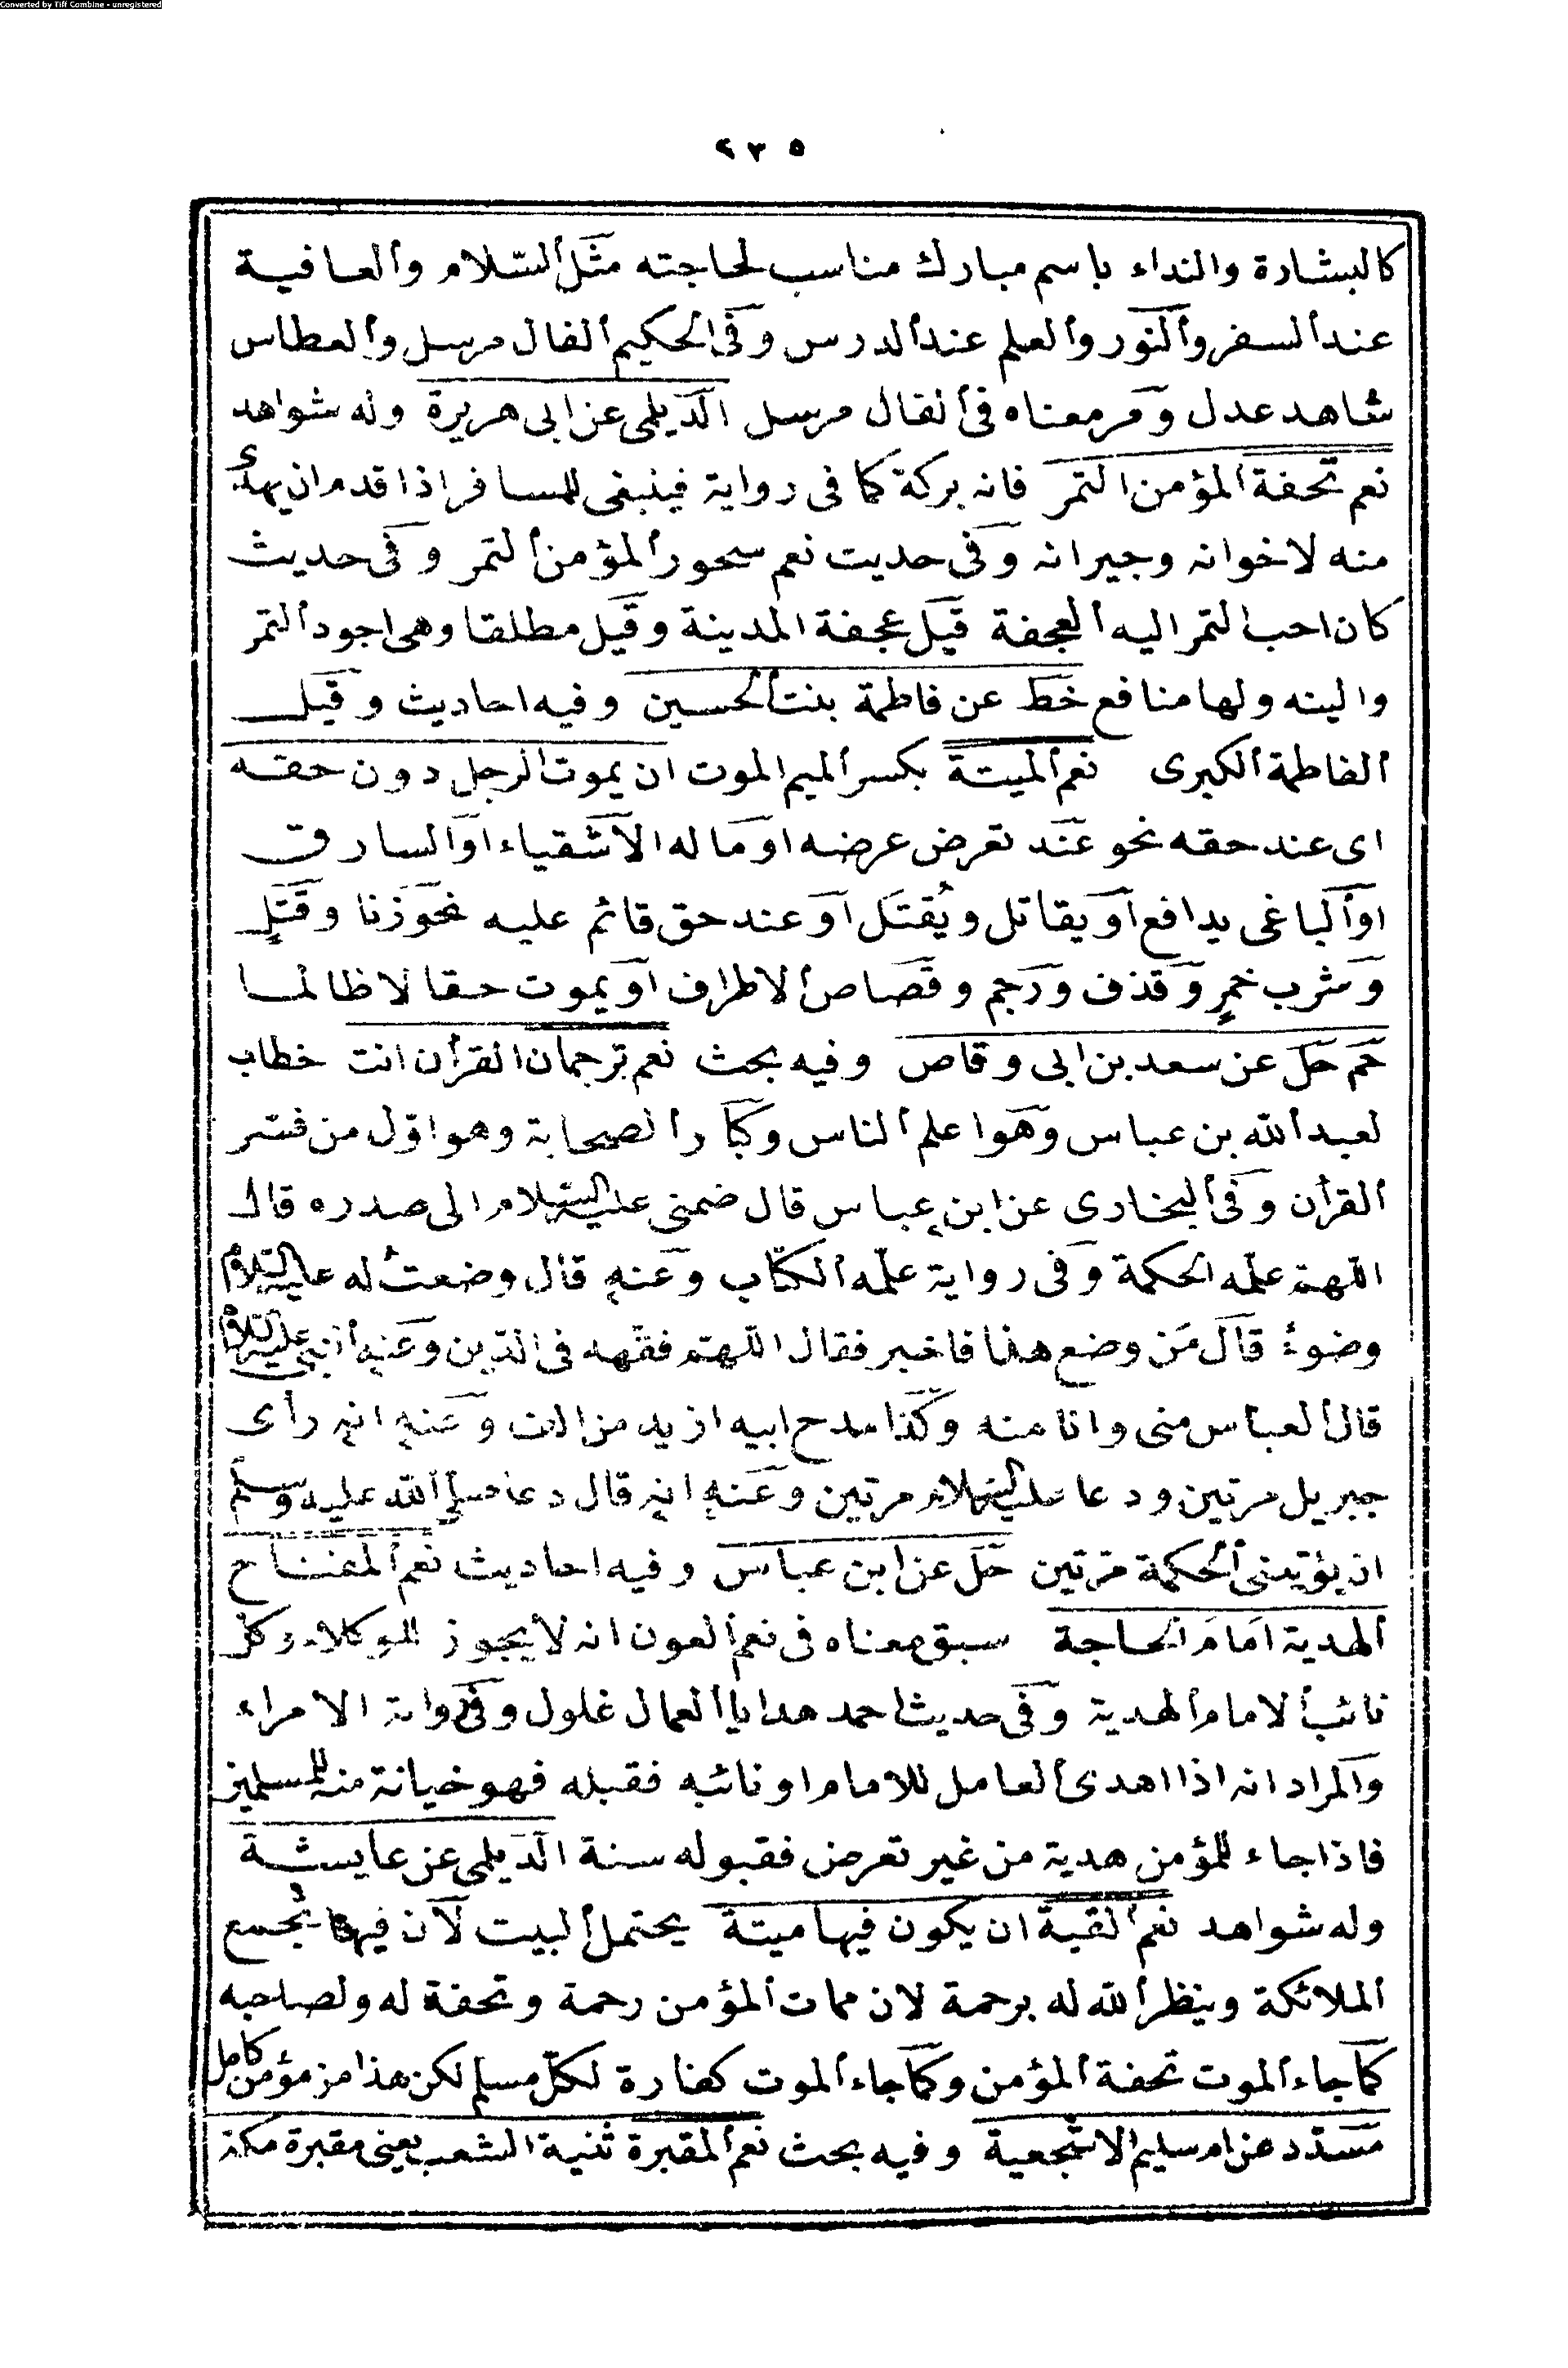 Converted by Tiff Combine - unregistered
٢٣٥
كالبشارة والنداء باسم مبارك مناسب لحاجته مثل السلام والعافية
عند السفر والنور والعلم عند الدرس وفى الحكيم الفال مرسل والعطاس
شاهد عدل ومر معناه فى الفال مرسل الديلمى عن ابى هريرة وله شواهد
نعم تحفة المؤمن التمر فانه بركة كما فى رواية فينبغى للمسافر اذا قدم ان يهدى
منه لاخوانه وجيرانه وفى حديث نعم سحور المؤمن التمر وفى حديث
كان احب التمر اليه العجفة قيل عجفة المدينة وقيل مطلقا وهى اجود التمر
والينه ولها منافع خط عن فاطمة بنت الحسين وفيه احاديث وقيل
الفاطمة الكبرى نعم الميتة بكسر الميم الموت ان يموت الرجل دون حقه
اى عند حقه نحو عند تعرض عرضه او ماله الاشقياء او السارق
او الباغى يدافع او يقاتل ويقتل او عند حق قائم عليه نحو زنا وقتل
وشرب خمر وقذف ورجم وقصاص الاطراف او يموت حقا لا ظالما
حم حل عن سعد بن ابى وقاص وفيه بحث نعم ترجمان القرأن انت خطاب
لعبد الله بن عباس وهو اعلم الناس وكبار الصحابة وهو اول من فسر
القرأن وفى البخارى عن ابن عباس قال ضمنى عليه السلام الى صدره قال
اللهم علمه الحكمة وفى رواية علمه الكتاب وعنه قال وضعت له عليه السلام
وضوءً قال من وضع هذا فاخبر فقال اللهم فقهه فى الدين وعنه انه عليه السلام
قال العباس منى وانا منه وكذا مدح ابيه ازيد من الات وعنه انه رأى
جبريل مرتين ودعا عليه السلام مرتين وعنه انه قال دعا صلى الله عليه وسلم
ان يؤتينى الحكمة مرتين حل عن ابن عباس وفيه احاديث نعم المفتاح
الهدية امام الحاجة سبق معناه فى نعم العون انه لا يجوز للوكلاء وكل
نائب الامام الهدية وفى حديث احمد هدايا العمال غلول وفى رواية الامراء
والمراد انه اذا اهدى العامل للامام او نائبه فقبله فهو خيانة منه للمسلمين
فاذا جاء للمؤمن هدية من غير تعرض فقبوله سنة الديلمى عن عايشة
وله شواهد نعم القبة ان يكون فيها ميتة يحتمل البيت لان فيها تجمع
الملائكة وينظر الله له برحمة لان ممات المؤمن رحمة وتحفة له ولصاحبه
كما جاء الموت تحفة المؤمن وكما جاء الموت كفارة لكل مسلم لكن هذا من مؤمن كامل
مسدد عن ام سليم الاشجعية وفيه بحث نعم المقبرة ثنية الشعب يعنى مقبرة مكة